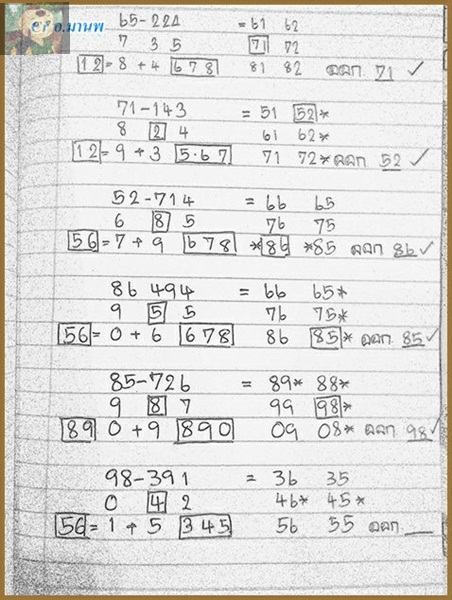 อ.มานพ
65-224 = 61 62
7 3 5 71 72
12 = 8 + 4 678 81 82 ออก 71 ✓
71-143 = 51 52*
8 2 4 61 62*
12 = 9 + 3 5.67 71 72* ออก 52 ✓
52-714 = 66 65
6 8 5 76 75
56 = 7 + 9 678 *86 *85 ออก 86 ✓
86 494 = 66 65*
9 5 5 76 75*
56 = 0 + 6 678 86 85* ออก 85 ✓
85-726 = 89* 88*
9 8 7 99 98*
89 0 + 9 890 09 08* ออก 98 ✓
98-391 = 36 35
0 4 2 46* 45*
56 = 1 + 5 345 56 55 ออก __